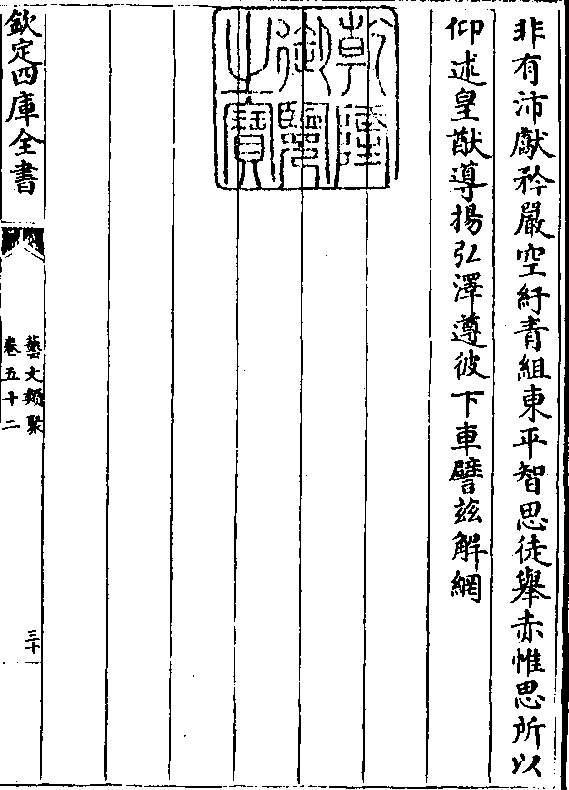 非有沛獻矜嚴空紆青組東平智思徒舉赤帷思所以
仰述皇猷導揚弘澤遵彼下車譬兹解網
乾隆御覽之寶
欽定四庫全書
藝文類聚
卷五十二
三十